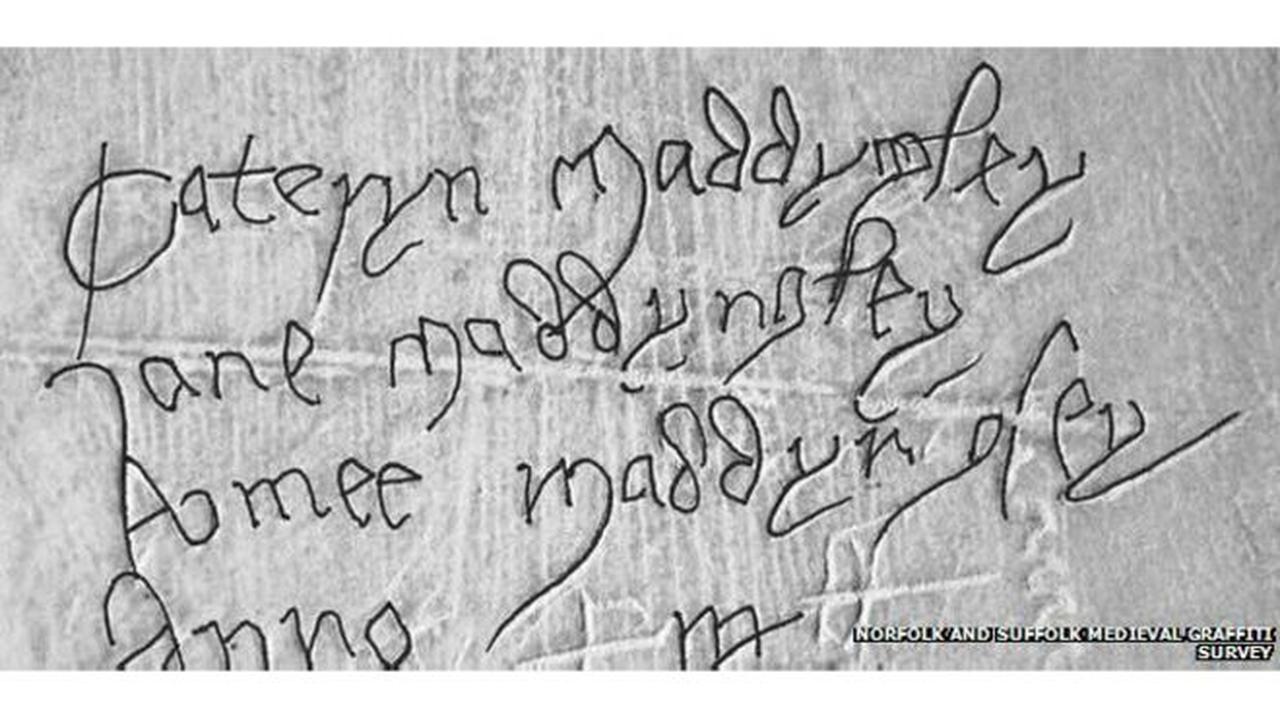 Cateryn Maddynsley
Jane Maddyngley
Amee Maddyngley
Anno m
NORFOLK AND SUFFOLK MEDIEVAL GRAFFITI
SURVEY